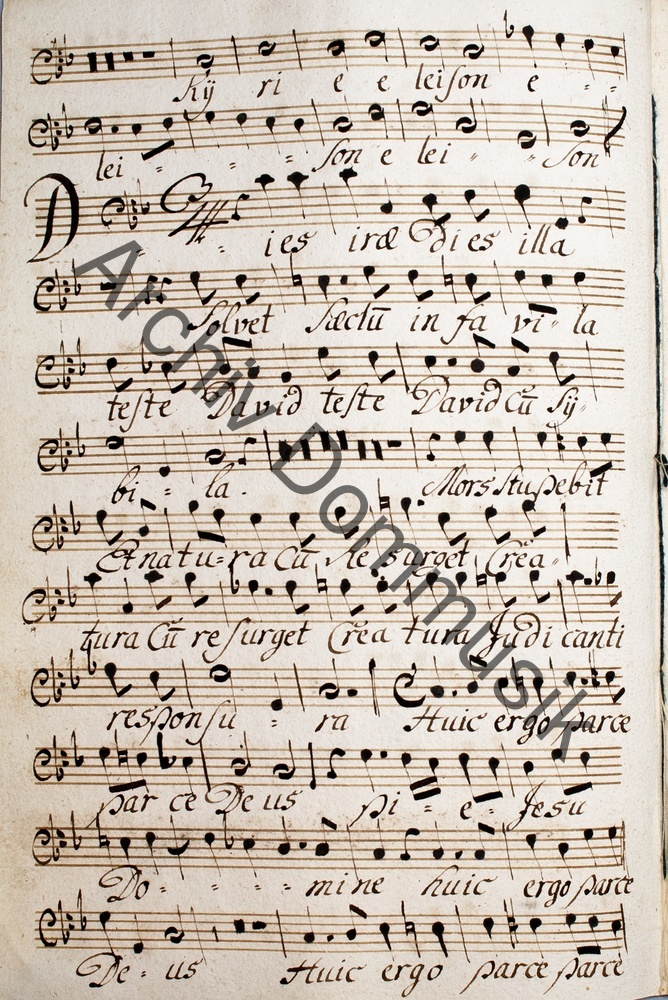 Kÿ ri e e leison e - -
lei - - - son e lei - - son
D - - ies iræ Di es illa
Solvet Sæclū in fa vi - la
teste David teste David Cū Sÿ -
bi - la. Mors stupebit
Et na tu - ra Cū Re surget Crea -
tura Cū re surget Crea tura Judi canti
respon su - ra Huic ergo parce
par ce De us pi - e - Jesu
Do - - - - mi ne huic ergo parce
De - us Huic ergo parce parce
Archiv Dommusik